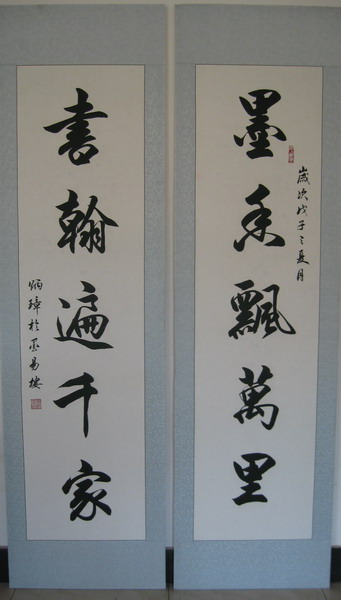 墨香飄萬里
歲次戊子之夏月
書翰遍千家
炳璋於墨易樓